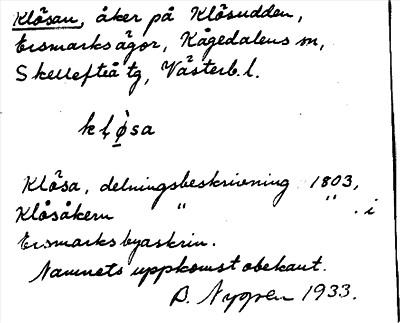 Klösan, åker på Klösudden,
Ersmarks ägor, Kågedalens sn,
Skellefteå tg, Västerb. l.
klø̀sa
Klösa, delningsbeskrivning 1803,
Klösåkern " " . i
Ersmarks byaskrin.
Namnets uppkomst obekant.
B. Nygren 1933.